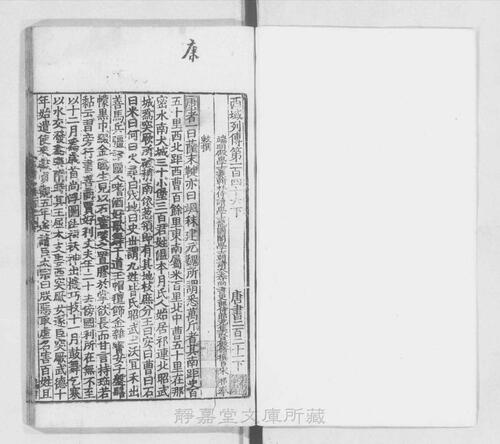 西域列傳第一百四十六下 唐書二百二十一下
敕撰
康者一曰薩末鞬亦曰颯秣建元魏所謂悉萬斤者其南距史百
五十里西北距西曹百餘里東南屬米百里北中曹五十里在那
密水南大城三十小堡三百君姓溫本月氏人始居祁連北昭武
城爲突厥所破稍南依葱嶺即有其地枝庶分王曰安曰曹曰石
曰米曰何曰火尋曰戊地曰史世謂九姓皆氏昭武土沃宜禾出
善馬兵彊諸國人嗜酒好歌舞于道王帽氈飾金雜寶女子盤髻
幪黑巾綴金蘤生兒以石蜜啖之置膠於掌欲長而甘言持珤若
黏云習旁行書善商賈好利丈夫年二十去傍國利所在無不至
以十二月爲歲首尚浮圖法祠祅神出機巧技十一月鼓舞乞寒
以水交潑爲樂隋時其王屈木支娶西突厥女遂臣突厥武德十
年始遣使來獻貞觀五年遂請臣太宗曰朕惡取虛名害百姓且
康
靜嘉堂文庫所藏